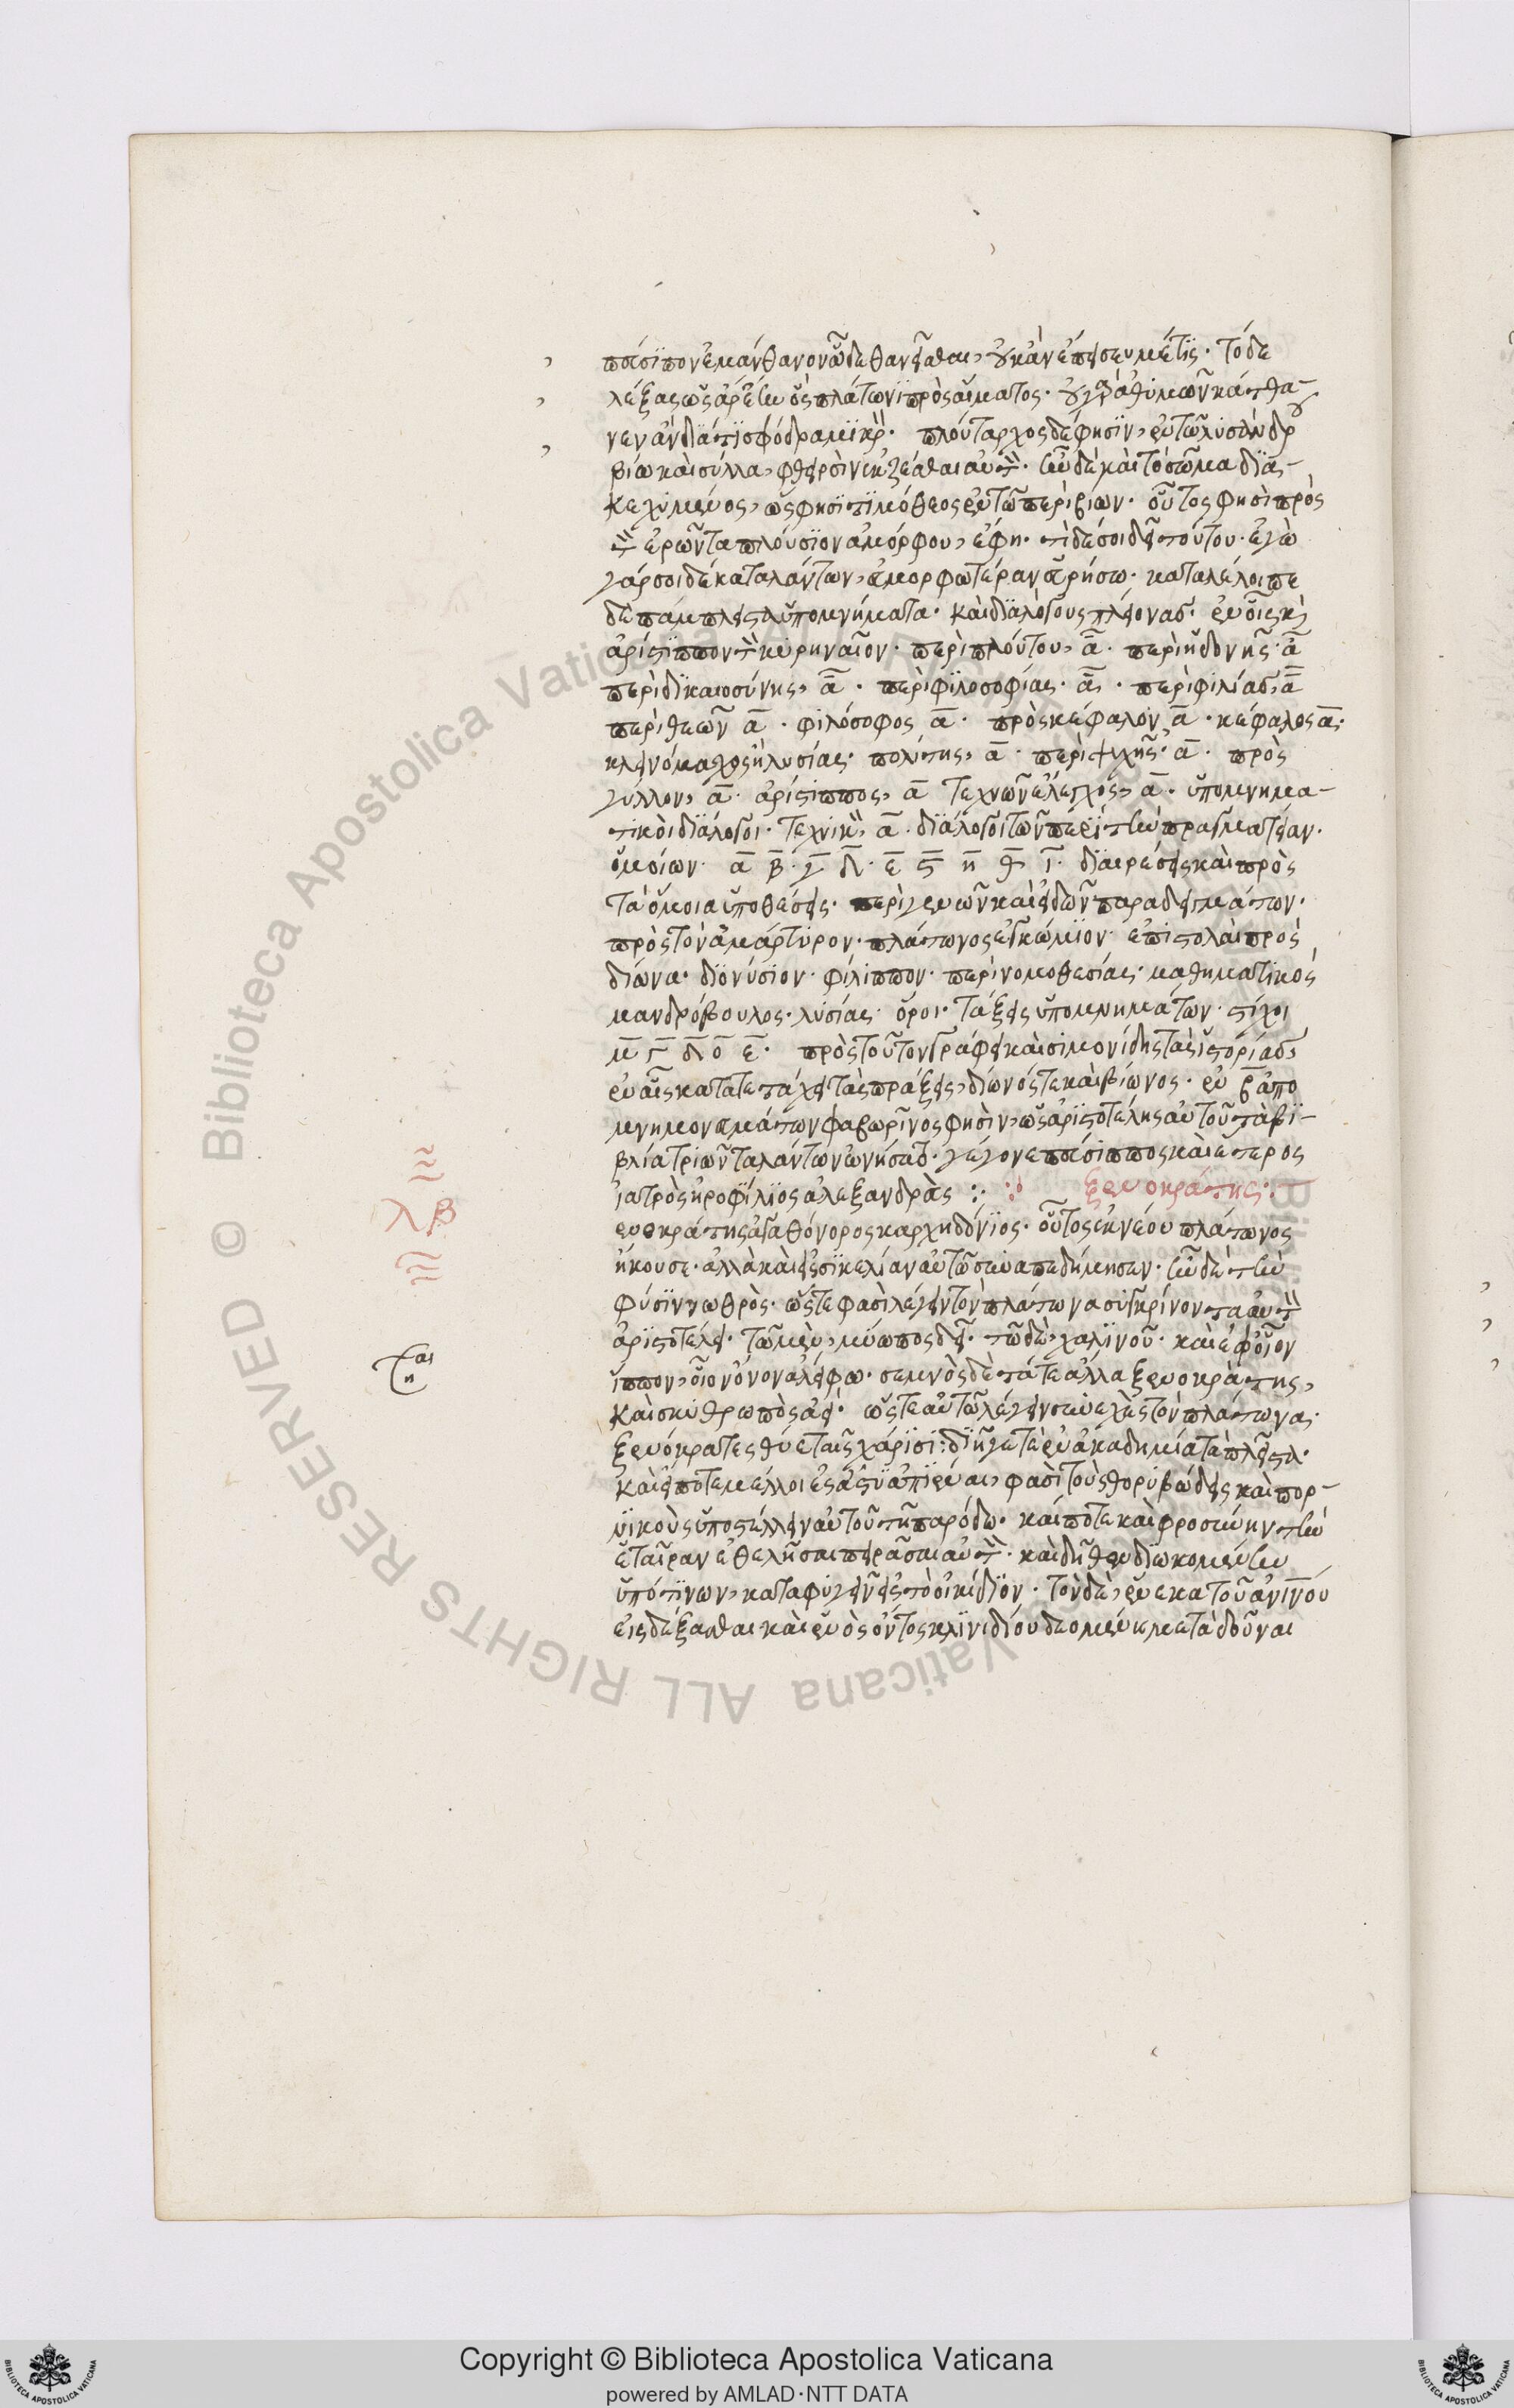 πεύσϊπον ἐμάνθανον ὧδε θανεῖσθαι, οὐκ ἄν ἔπεισεν μέ τϊς. τόδε
λέξας ὡς ἄρ' ἔην ὃς πλάτωνϊ πρὸς αἵματος. οὐ γὰρ ἀθυμῶν κάτθα-
νεν ἂν διά τϊ σφόδρα μϊκρόν. πλούταρχος δέ φησϊν, ἐν τῶ λυσάνδρου
βίω καὶ σύλλα, φθειρσὶν ἐκζέσθαι αὐτόν. ἦν δὲ καὶ τὸ σῶμα δϊα-
κεχϋμένος, ὥς φησϊ τϊμόθεος ἐν τῶ περὶ βίων. οὗτος φησὶ πρὸς
τὸν ἐρῶντα πλούσϊον ἀμόρφου, ἔφη. τί δέ σοι δεῖ τούτου. ἐγὼ
γάρ σοι δέκα ταλάντων, εὐμορφωτέραν εὑρήσω. καταλέλοιπε
δὲ πάμπλειστα ὑπομνήματα. καὶ διαλόγους πλείονας. ἐν οἷς καὶ
ἀρίστϊππον τὸν κυρηναῖον. περὶ πλούτου, α. περὶ ἡδονῆς α
περὶ δϊκαιοσύνης, α. περὶ φϊλοσοφίας. α. περὶ φιλίας, α
περὶ θεῶν α. φιλόσοφος α. πρὸς κέφαλον α. κέφαλος α.
κλεινόμαχος ἢ λυσίας. πολίτης, α. περὶ ψυχῆς. α. πρὸς
γύλλον, α. ἀρίστιππος, α τεχνῶν ἔλεγχος, α. ὑπομνημα-
τικοὶ διάλογοι. τεχνικὸν, α. διάλογοι τῶν περὶ τὴν πραγματείαν.
ὁμοίων α β. γ δ. ε ς η θ ι. διαιρέσεις καὶ πρὸς
τὰ ὅμοια ὑποθέσεις. περὶ γενῶν καὶ εἰδῶν παραδειγμάτων.
πρὸς τὸν ἀμάρτυρον. πλάτωνος ἐγκώμϊον ἐπιστολαὶ πρὸς
δίωνα. διονύσϊον. φίλιππον. περὶ νομοθεσίας. μαθηματϊκὸς
μανδρόβουλος. λυσίας. ὅροι. τάξεις ὑπομνημάτων. στίχοι
πρὸς τοῦτον γράφει καὶ σϊμονίδης τὰς ἱστορίας,
ἐν αἷς κατατετάχει τὰς πράξεις, δίωνός τε καὶ βίωνος. ἐν β ἀπο
μνημονευμάτων φαβωρῖνος φησὶν, ὡς ἀρϊστοτέλης αὐτοῦ τὰ βϊ-
βλία τριῶν ταλάντων ὠνήσατο. γέγονε πεύσιππος καὶ ἕτερος
ἰατρὸς ἡροφϊλιος ἀλεξανδρεὺς :· ξενοκράτης:
λβ
ενοκράτης ἀγαθόνορος καρχηδόνϊος. οὗτος ἐκ νέου πλάτωνος
ἤκουσε. ἀλλὰ καὶ εἰς σϊκελίαν αὐτῶ συναπεδήμησεν. ἦν δὲ τὴν
φύσϊν νωθρὸς. ὥστε φασὶ λέγειν τὸν πλάτωνα συγκρίνοντα αὐτὸν
ἀρϊστοτέλει. τῶ μὲν, μύωπος δεῖ. τῶ δὲ, χαλϊνοῦ. καὶ ἐφ' οἷον
ἵππον, οἷον ὄνον ἀλείφω. σεμνὸς δὲ τά τε ἄλλα ξενοκράτης,
καὶ σκυθρωπὸς ἀεί. ὥστε αὐτῶ λέγειν συνεχὲς τὸν πλάτωνα.
ξενόκρατες θύε ταῖς χάρϊσι: διῆγέ τε ἐν ἀκαδημία τὰ πλεῖστα.
καὶ εἴποτε μέλλοι εἰς ἄστϋ ἀπϊέναι, φασὶ τοὺς θορυβώδεις καὶ πορ-
νϊκοὺς ὑποστέλλειν αὐτοῦ τῆ παρόδω. καί ποτε καὶ φροσύνην τὴν
ἑταῖραν ἐθελῆσαι πειρᾶσαι αὐτόν. καὶ δῆθεν δϊωκομένην
ὑπό τϊνων, καταφυγεῖν εἰς τὸ οἰκίδϊον. τὸν δὲ, ἕνεκα τοῦ ἀνϊνου
εἰσδέξασθαι καὶ ἑνὸς ὄντος κλϊνιδίου δεομένη μεταδοῦναι
Copyright © Biblioteca Apostolica Vaticana
powered by AMLAD·NTT DATA